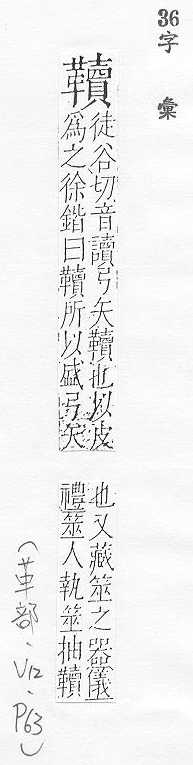 36字彙
韇
徒谷切音讀弓矢韇也以皮
爲之徐鍇曰韇所以盛弓矢
也又藏筮之器儀
禮筮人執筮抽韇
(革部.V12.P63)